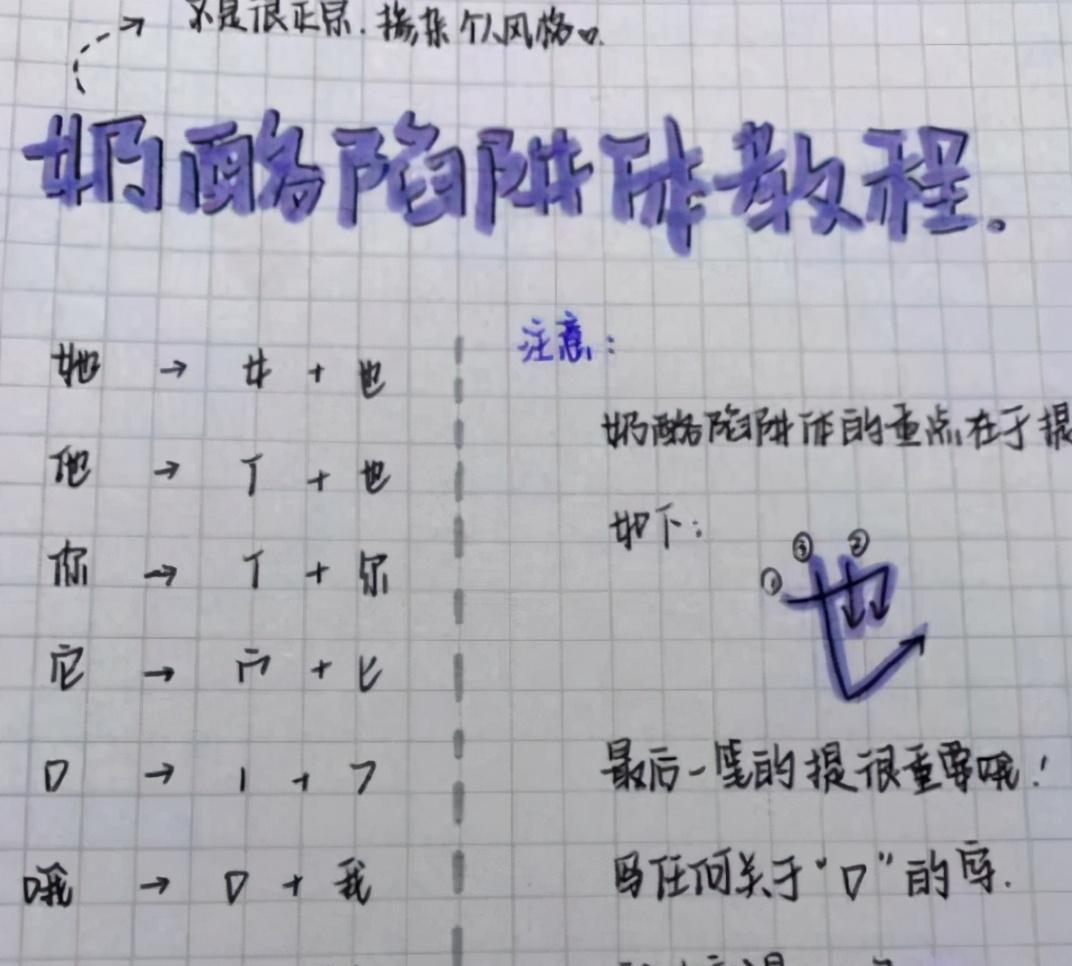 不是很正常.掺杂个人风格
奶酪陷阱体教程。
她 → 女 + 也
他 → 亻 + 也
你 → 亻 + 尔
它 → 宀 + 匕
口 → 丨 + ㇕
哦 → 口 + 我
注意:
奶酪陷阱体的重点在于提
如下:
① ③ ②
也
最后一笔的提很重要哦!
写任何关于“口”的字.